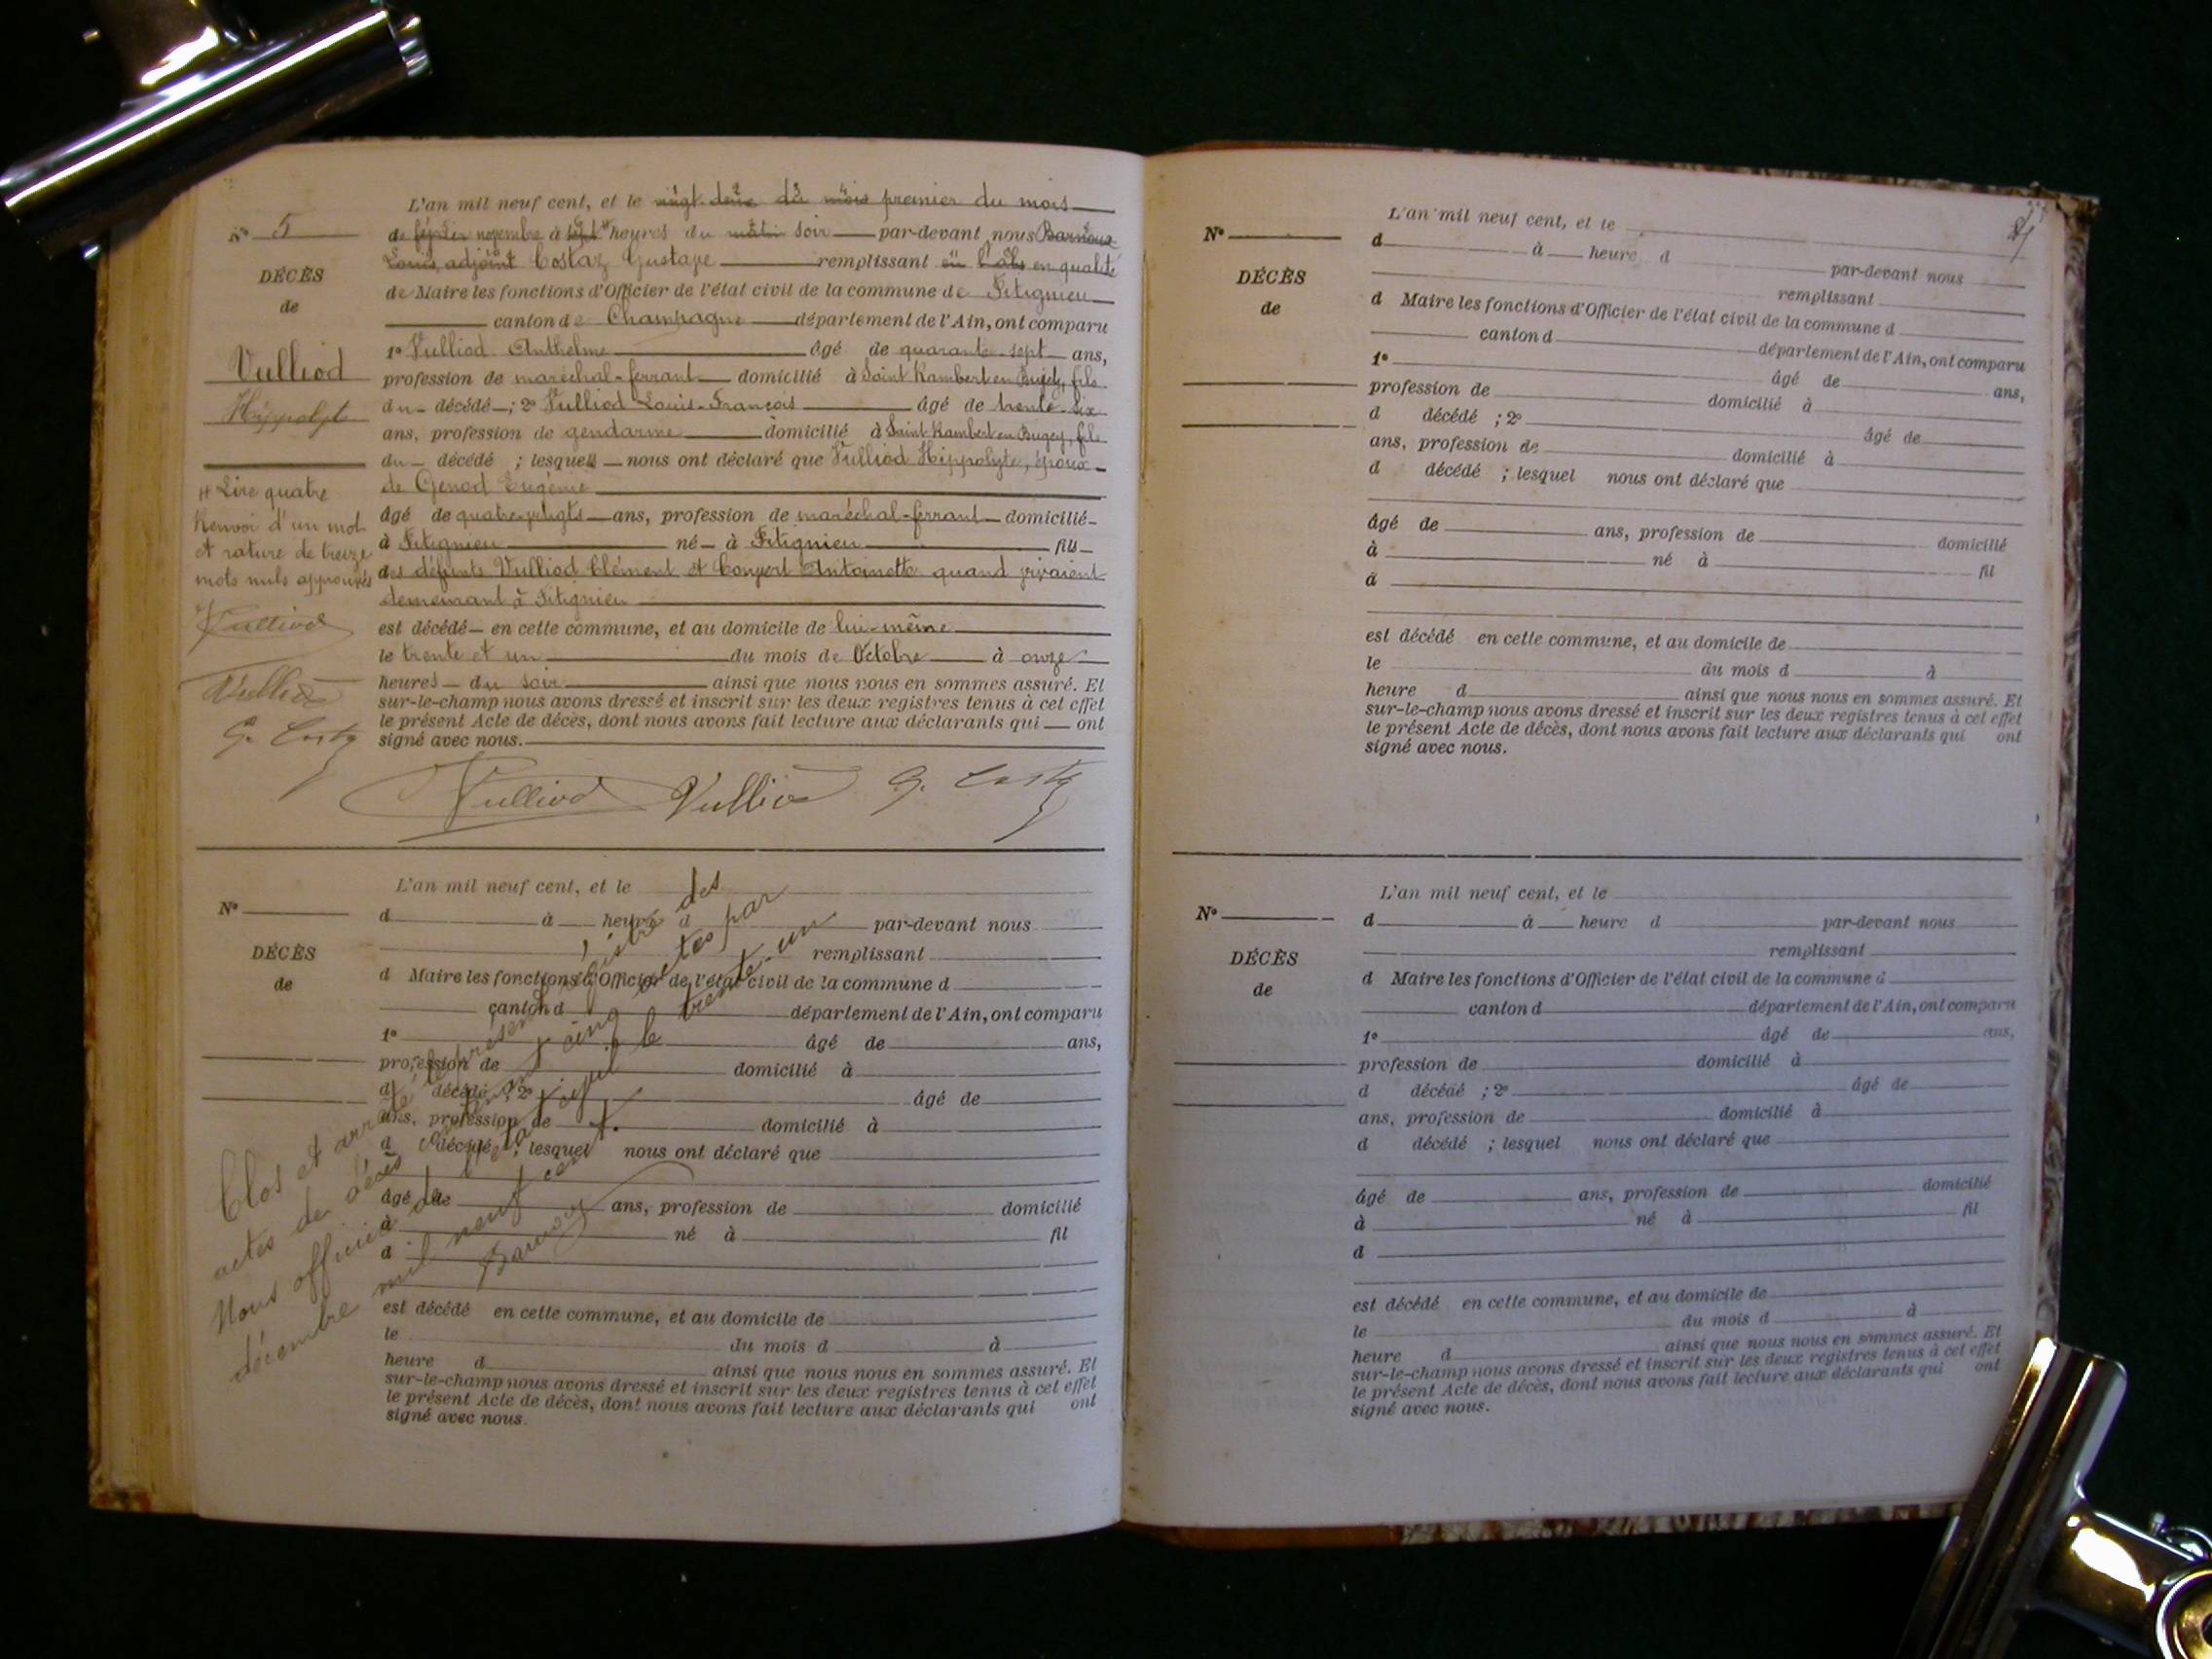 L'an mil neuf cent, et le vingt deux du mois premier du mois
Nº 5
de février novembre à sept # heures du matin soir par-devant nous Barnoux
Louis, adjoint Costaz Gustave remplissant en qualité
DÉCÈS
de
de Maire les fonctions d'Officier de l'état civil de la commune de Fitignieu
canton de Champagne département de l'Ain, ont comparu
Vulliod
Hippolyte
1º Vulliod Anthelme âgé de quarante-sept ans,
profession de maréchal-ferrant domicilié à Saint Rambert en Bugey, fils
du décédé ; 2º Vulliod Louis-François âgé de trente-six
ans, profession de gendarme domicilié à Saint Rambert en Bugey, fils
du décédé ; lesquels nous ont déclaré que Vulliod Hippolyte, époux
de Genod Eugénie
âgé de quatre-vingts ans, profession de maréchal-ferrant domicilié
à Fitignieu né à Fitignieu fils
des défunts Vulliod Clément et Convert Antoinette quand vivaient
demeurant à Fitignieu
est décédé en cette commune, et au domicile de lui-même
le trente et un du mois de Octobre à onze
heures du soir ainsi que nous nous en sommes assuré. Et
sur-le-champ nous avons dressé et inscrit sur les deux registres tenus à cet effet
le présent Acte de décès, dont nous avons fait lecture aux déclarants qui ont
signé avec nous.
# Lire quatre
Renvoi d'un mot
et rature de treize
mots nuls approuvés
Vulliod
Vulliod
G. Costaz
Vulliod Vulliod G. Costaz
L'an mil neuf cent, et le
Nº
d à heure d par-devant nous
remplissant
DÉCÈS
de
d Maire les fonctions d'Officier de l'état civil de la commune d
canton d département de l'Ain, ont comparu
1º âgé de ans,
profession de domicilié à
d décédé ; 2º âgé de
ans, profession de domicilié à
d décédé ; lesquel nous ont déclaré que
âgé de ans, profession de domicilié
à né à fil
d
est décédé en cette commune, et au domicile de
le du mois d à
heure d ainsi que nous nous en sommes assuré. Et
sur-le-champ nous avons dressé et inscrit sur les deux registres tenus à cet effet
le présent Acte de décès, dont nous avons fait lecture aux déclarants qui ont
signé avec nous.
Clos et arrêté le présent registre des
actes de décès contenant cinq actes par
Nous officier de l'état civil le trente-un
décembre mil neuf cent.
Barnoux
L'an mil neuf cent, et le
Nº
d à heure d par-devant nous
remplissant
DÉCÈS
de
d Maire les fonctions d'Officier de l'état civil de la commune d
canton d département de l'Ain, ont comparu
1º âgé de ans,
profession de domicilié à
d décédé ; 2º âgé de
ans, profession de domicilié à
d décédé ; lesquel nous ont déclaré que
âgé de ans, profession de domicilié
à né à fil
d
est décédé en cette commune, et au domicile de
le du mois d à
heure d ainsi que nous nous en sommes assuré. Et
sur-le-champ nous avons dressé et inscrit sur les deux registres tenus à cet effet
le présent Acte de décès, dont nous avons fait lecture aux déclarants qui ont
signé avec nous.
L'an mil neuf cent, et le
Nº
d à heure d par-devant nous
remplissant
DÉCÈS
de
d Maire les fonctions d'Officier de l'état civil de la commune d
canton d département de l'Ain, ont comparu
1º âgé de ans,
profession de domicilié à
d décédé ; 2º âgé de
ans, profession de domicilié à
d décédé ; lesquel nous ont déclaré que
âgé de ans, profession de domicilié
à né à fil
d
est décédé en cette commune, et au domicile de
le du mois d à
heure d ainsi que nous nous en sommes assuré. Et
sur-le-champ nous avons dressé et inscrit sur les deux registres tenus à cet effet
le présent Acte de décès, dont nous avons fait lecture aux déclarants qui ont
signé avec nous.